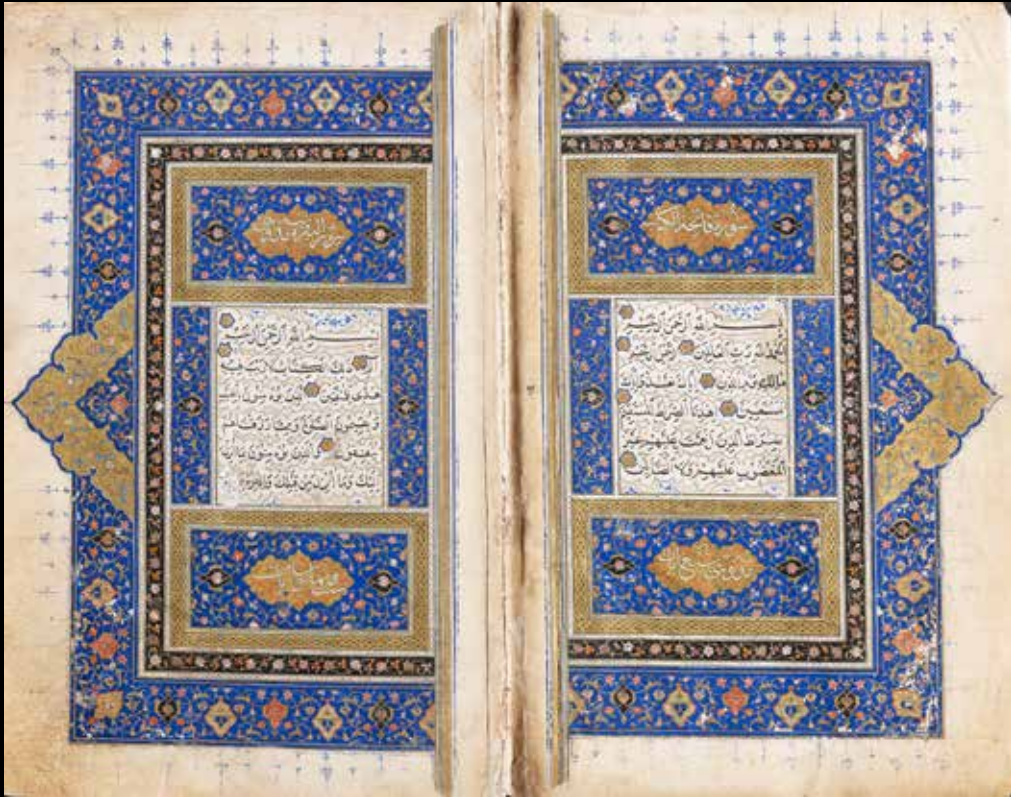 سورة فاتحة الكتاب
بسم الله الرحمن الرحيم
الحمد لله رب العالمين الرحمن الرحيم
مالك يوم الدين اياك نعبد واياك
نستعين اهدنا الصراط المستقيم
صراط الذين انعمت عليهم غير
المغضوب عليهم ولا الضالين
سبع ايات
سورة البقرة
بسم الله الرحمن الرحيم
الم ذلك الكتاب لا ريب فيه
هدى للمتقين الذين يؤمنون بالغيب
ويقيمون الصلوة ومما رزقناهم
ينفقون والذين يؤمنون بما انزل
اليك وما انزل من قبلك وبالاخرة